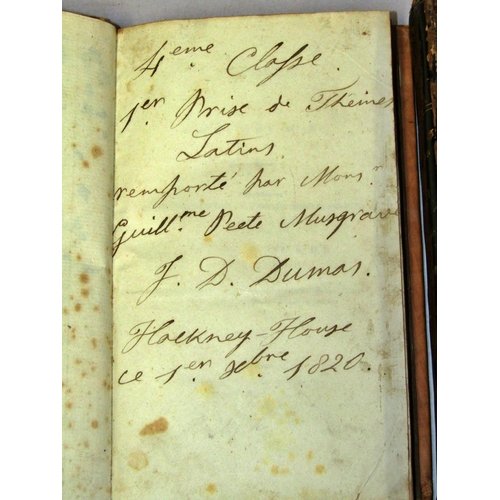 4eme. Classe.
1er. Prise de Thêmes
Latins.
remporté par Monsr.
Guillme. Peete Musgrave
J. D. Dumas.
Hackney-House
ce 1er. Xbre 1820.